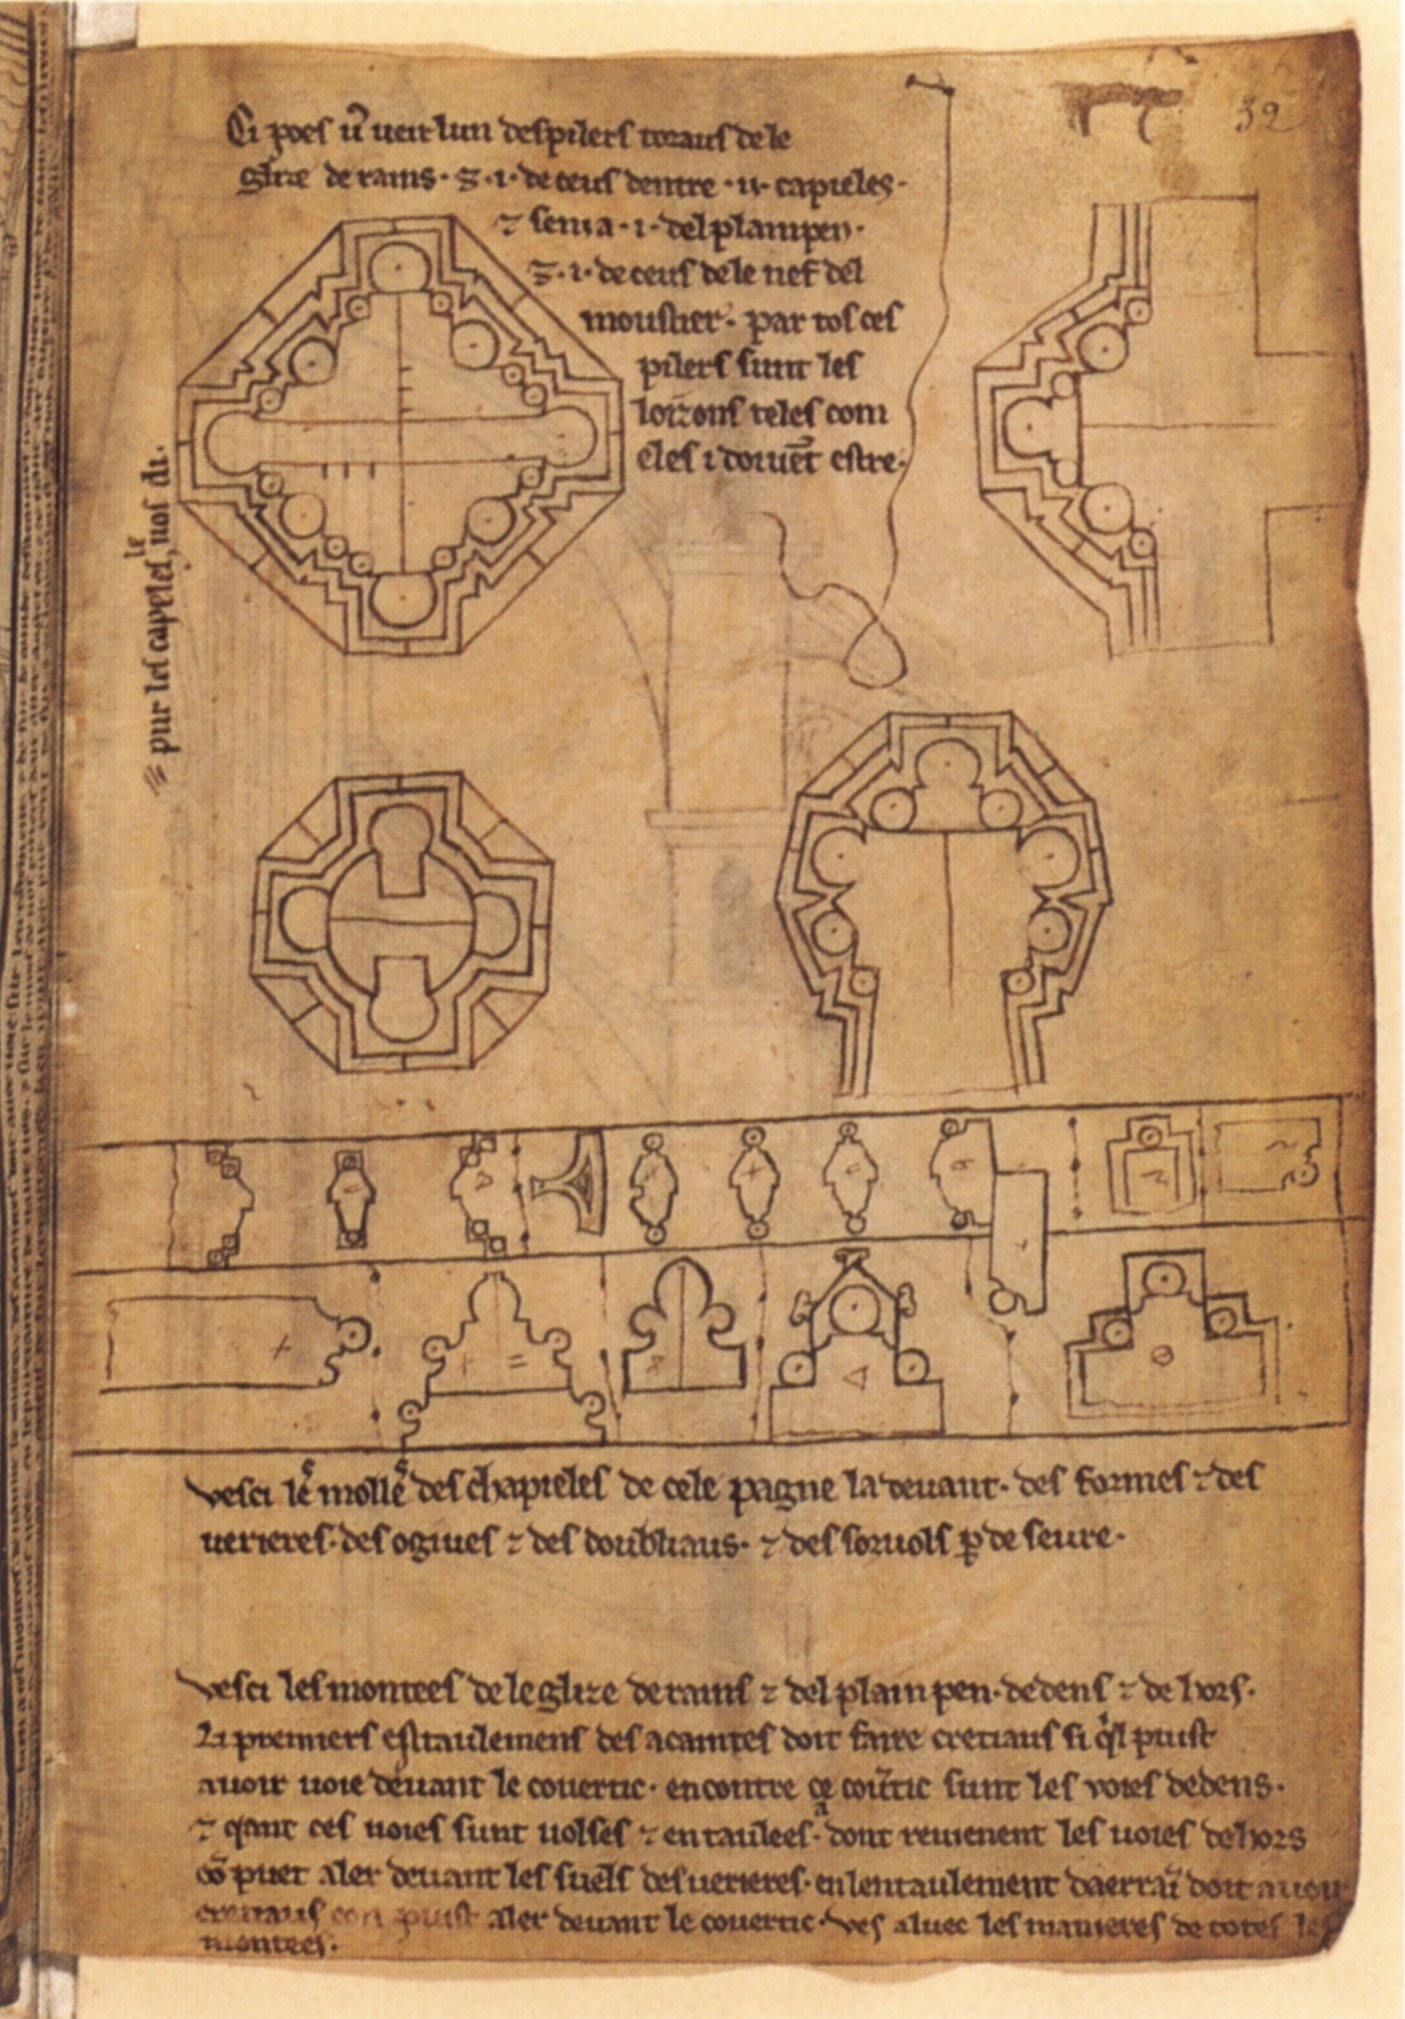 32
Ci poes vͦ veir lun des pilers toraus de le
glize de rains · ⁊ · i · de ceus dentre · ii · capieles ·
⁊ seni a · i · del plain pen ·
⁊ · i · de ceus de le nef del
moustier · par tos ces
pilers sunt les
loizons teles com
eles i doiuēt estre ·
pur les capeles, le uos di ·
vesci les molles des chapieles de cele pagne la deuant · des formes ⁊ des
uerieres · des ogiues ⁊ des doubliaus · ⁊ des soruols p̄ de seure ·
vesci les montees de le glize de rains ⁊ del plain pen · dedens ⁊ de hors ·
Li premiers esztaulemens des acaintes doit faire cretiaus si qͥl puist
auoir uoie deuant le couertic · encontre ce cou̾tic sunt les voies dedens ·
⁊ qͣnt ces uoies sunt uolses ⁊ entaulees · a dont reuienent les uoies dehors
cō puet aler deuant les suels des uerieres · en lentaulement daerraī doit auoir
cretiaus con puist aler deuant le couertic · ves aluec les manieres de totes les
montees ·